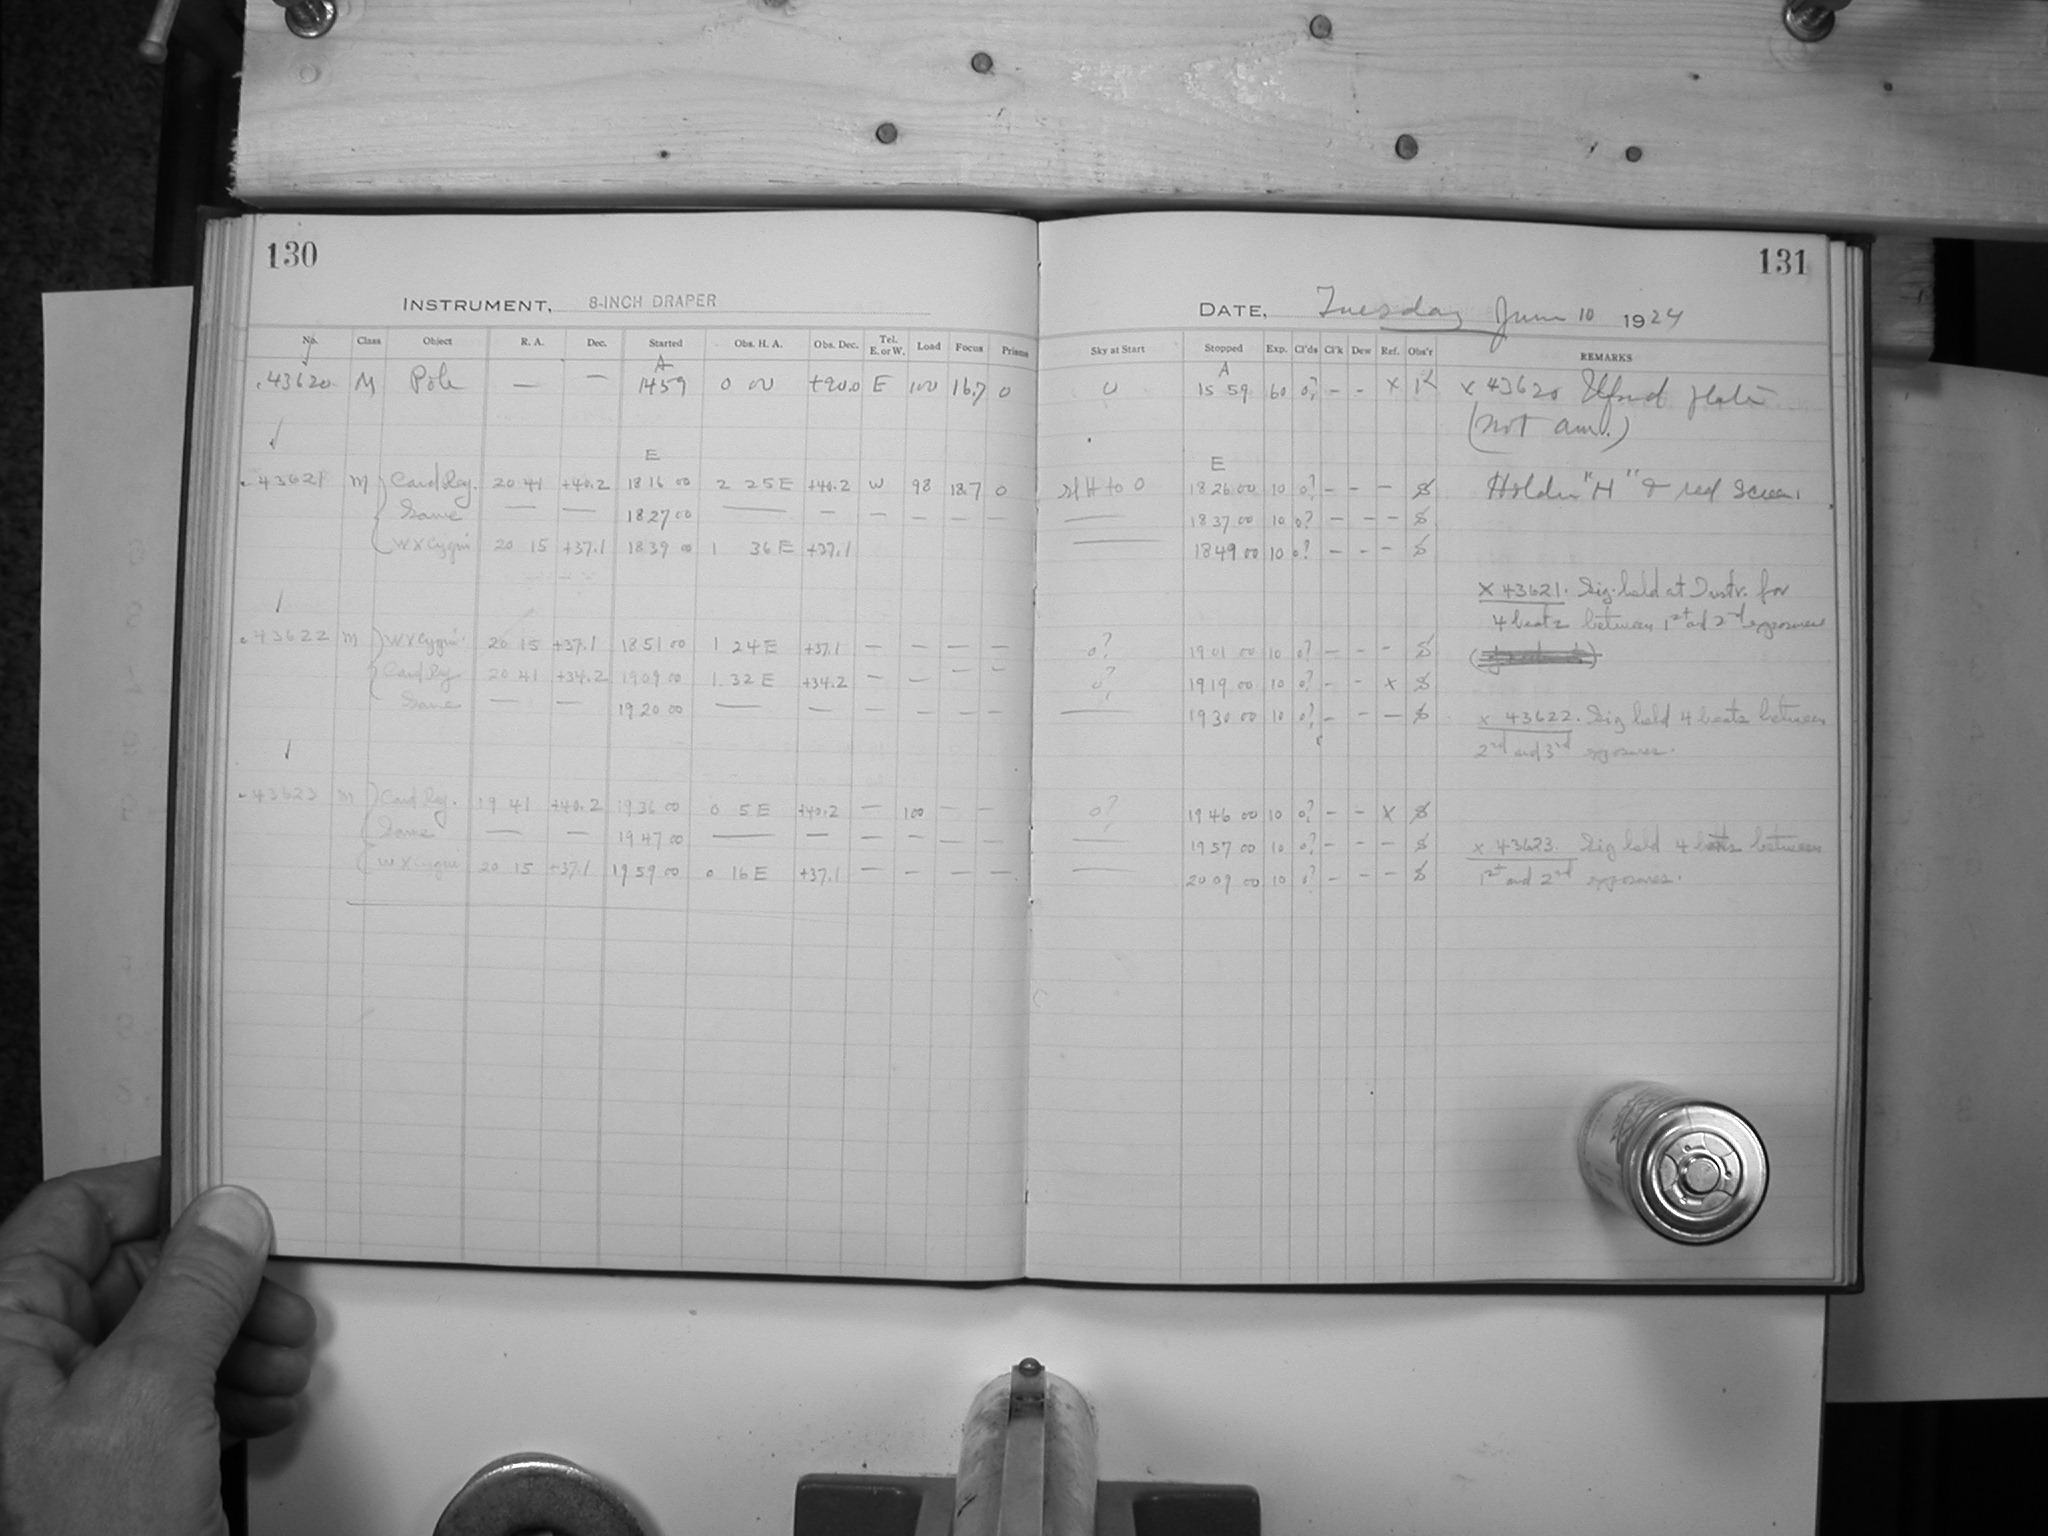 130
131
INSTRUMENT, 8-INCH DRAPER
DATE, Tuesday June 10 1924
No. Class Object R. A. Dec. Started Obs. H. A. Obs. Dec. Tel. E. or W. Load Focus Prisms Sky at Start Stopped Exp. Cl'ds Cl'k Dew Ref. Obs'r REMARKS
A A
43620 M Pole — — 14 59 0 00 +90.0 E 100 16.7 0 0 15 59 60 0? – – x x 43620
(not am.)
E E
43621 M 20 41 +40.2 18 16 00 2 25 E +40.2 W 98 18.7 0 H to 0 18 26 00 10 0? – – – S Holder "H" & red screen
Same — — 18 27 00 — – – – – – — 18 37 00 10 0? – – – S
WX Cygni 20 15 +37.1 18 39 00 1 36 E +37.1 — 18 49 00 10 0? – – – S
x 43621. Sig. held at Instr. for
4 beats between 1st and 2nd exposures
43622 M WX Cygni 20 15 +37.1 18 51 00 1 24 E +37.1 – – – – 0? 19 01 00 10 0? – – – S
20 41 +34.2 19 09 00 1 32 E +34.2 – – – – 0? 19 19 00 10 0? – – x S
Same — — 19 20 00 — – – – – – — 19 30 00 10 0? – – – S x 43622. Sig held 4 beats between
2nd and 3rd exposures.
43623 M 19 41 +40.2 19 36 00 0 5 E +40.2 – 100 – – 0? 19 46 00 10 0? – – x S
Same — — 19 47 00 — – – – – – — 19 57 00 10 0? – – – S x 43623. Sig held 4 beats between
WX Cygni 20 15 +37.1 19 59 00 0 16 E +37.1 – – – – — 20 09 00 10 0? – – – S 1st and 2nd exposures.